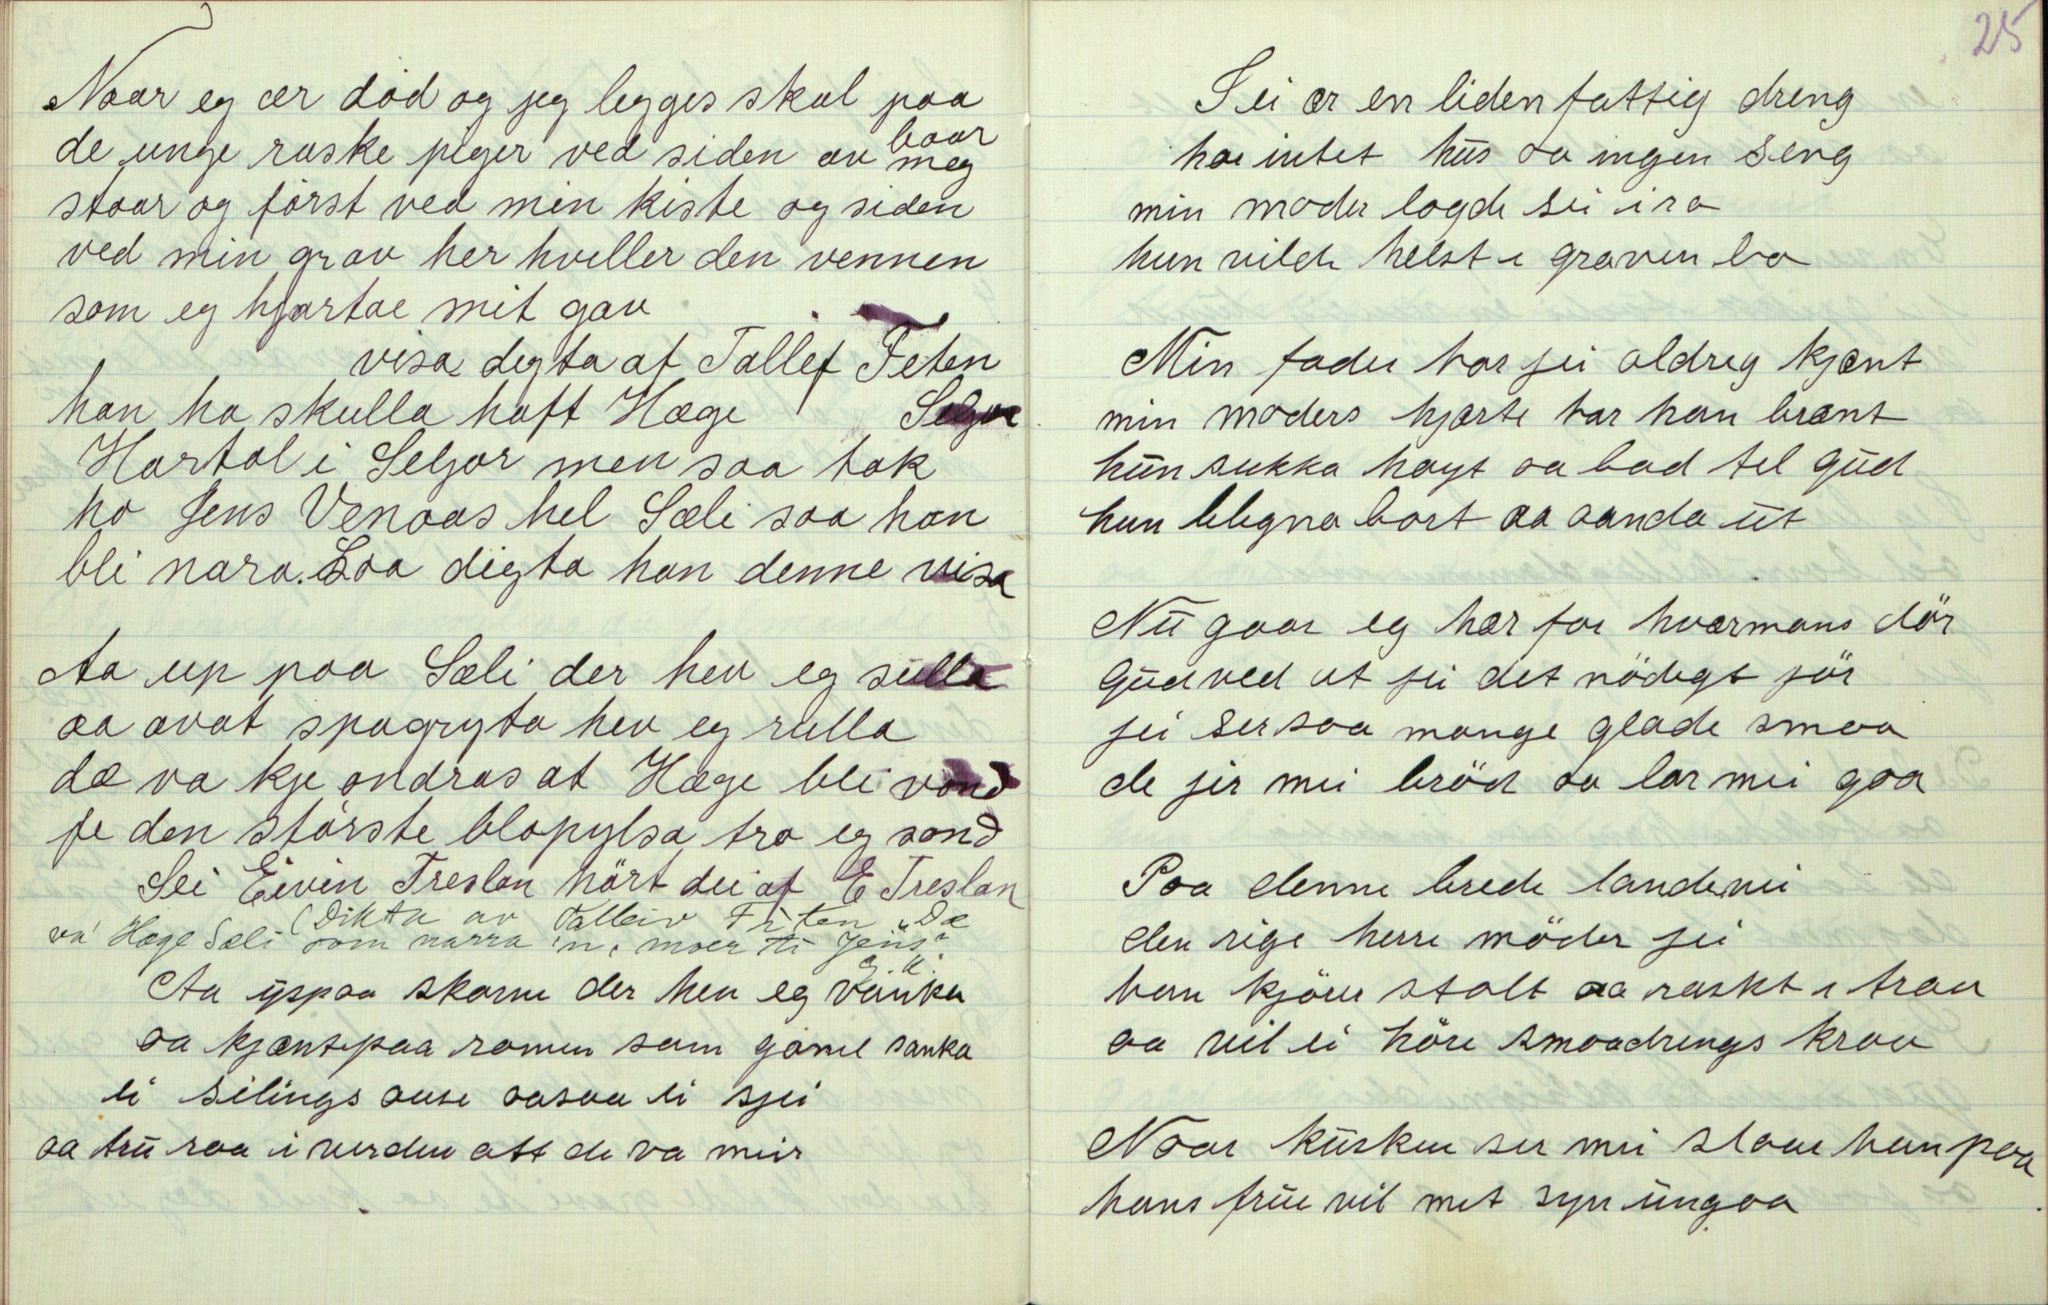 Naar eg ær død og jeg legges skal paa
baar
de unge raske piger ved siden av meg
staar og først ved min kiste og siden
ved min grav her hviller den vennen
som eg hjærtae mit gav
visa degta af Tallef Feten
han ha skulla haft Hæge Seljor
Hartol i Seljor men saa tok
ho Jens Venaas hel Sæli saa han
bli nara. Saa digta han denne visa
Aa up paa Sæli der hev eg sulla
aa avat spagryta hev eg rulla
dæ va kje ondras at Hæge bli vond
fe den største blapylsa tra eg sond
Sei Eivin Treslan hört dei af E Treslan
(Dikta av Talleiv Feten "Dæ
va' Hæge Sæli som narra 'n, moer ti Jens"
Aa üppaa skarne der hev eg vanka
aa kjæntepaa romen som gamel sanka
ei silings ause aasaa ei sjei
aa trü raa i verden att de va meir
25
Jei ær en liden fattig dreng
hae intet hüs aa ingen seng
min moder lagde sei i ra
hun vilde helst i graven ba
Min fader har jei aldreg kjænt
min moders hjærte har han brænt
hün sukka høyt aa bad tel Güd
hun blegna bort aa aanda üt
Nü gaar eg hær for hværmans dör
Güd ved at jei det nödigt jör
jei ser saa mange glade smaa
de jir mei bröd aa lar mei gaa
Paa denne brede landevei
den rige herre möder jei
han kjörer stolt aa raskt i trav
aa vil ei höre smaadrengs krav
Naar küsken ser mei staar han paa
hans früe vil met syn ungaa